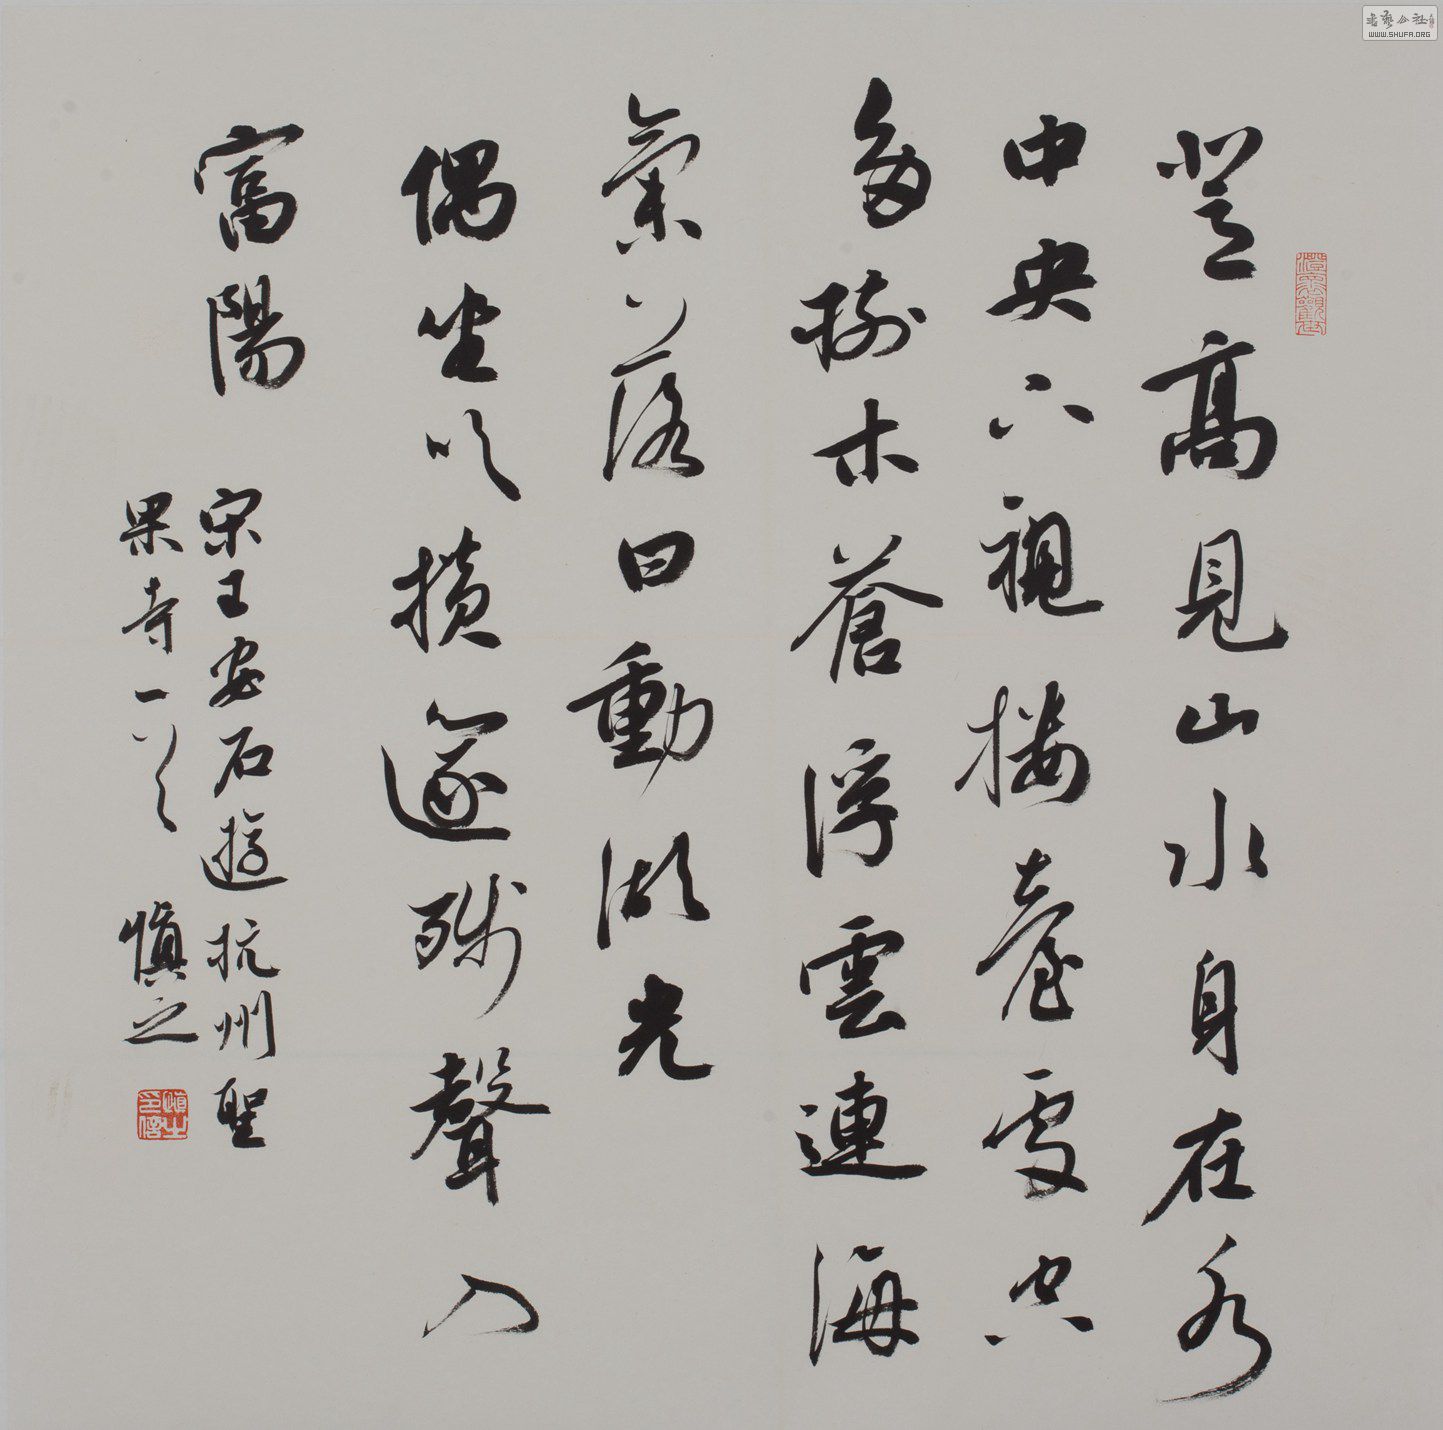 登高見山水身在水
中央下視樓臺處空
多樹木蒼浮雲連海
氣落日動湖光
偶坐吹橫篴殘聲入
富陽
宋王安石遊杭州聖
果寺一首 慎之
慎之印信
書藝公社
WWW.SHUFA.ORG